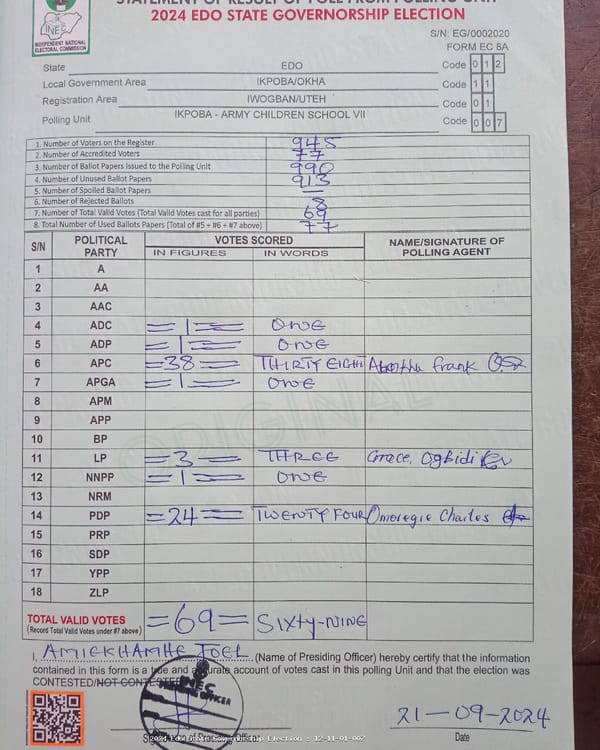 STATEMENT OF RESULT OF POLL FROM POLLING UNIT
2024 EDO STATE GOVERNORSHIP ELECTION
INEC
INDEPENDENT NATIONAL
ELECTORAL COMMISSION
S/N: EG/0002020
FORM EC 8A
State EDO Code 0 1 2
Local Government Area IKPOBA/OKHA Code 1 1
Registration Area IWOGBAN/UTEH Code 0 1
Polling Unit IKPOBA - ARMY CHILDREN SCHOOL VII Code 0 0 7
1. Number of Voters on the Register 945
2. Number of Accredited Voters 77
3. Number of Ballot Papers Issued to the Polling Unit 990
4. Number of Unused Ballot Papers 913
5. Number of Spoiled Ballot Papers —
6. Number of Rejected Ballots 8
7. Number of Total Valid Votes (Total Valid Votes cast for all parties) 69
8. Total Number of Used Ballots Papers (Total of #5 + #6 + #7 above) 77
S/N POLITICAL PARTY VOTES SCORED NAME/SIGNATURE OF POLLING AGENT
IN FIGURES IN WORDS
1 A
2 AA
3 AAC
4 ADC =1= ONE
5 ADP =1= ONE
6 APC =38= THIRTY EIGHT Frank
7 APGA =1= ONE
8 APM
9 APP
10 BP
11 LP =3= THREE Grace, Ogbidi
12 NNPP =1= ONE
13 NRM
14 PDP =24= TWENTY FOUR Omoregie Charles
15 PRP
16 SDP
17 YPP
18 ZLP
TOTAL VALID VOTES =69= SIXTY-NINE
(Record Total Valid Votes under #7 above)
I, AMIEKHAMHE JOEL (Name of Presiding Officer) hereby certify that the information
contained in this form is a true and accurate account of votes cast in this polling Unit and that the election was
CONTESTED/NOT CONTESTED
INEC
PRESIDING OFFICER
21-09-2024
Date
ORIGINAL